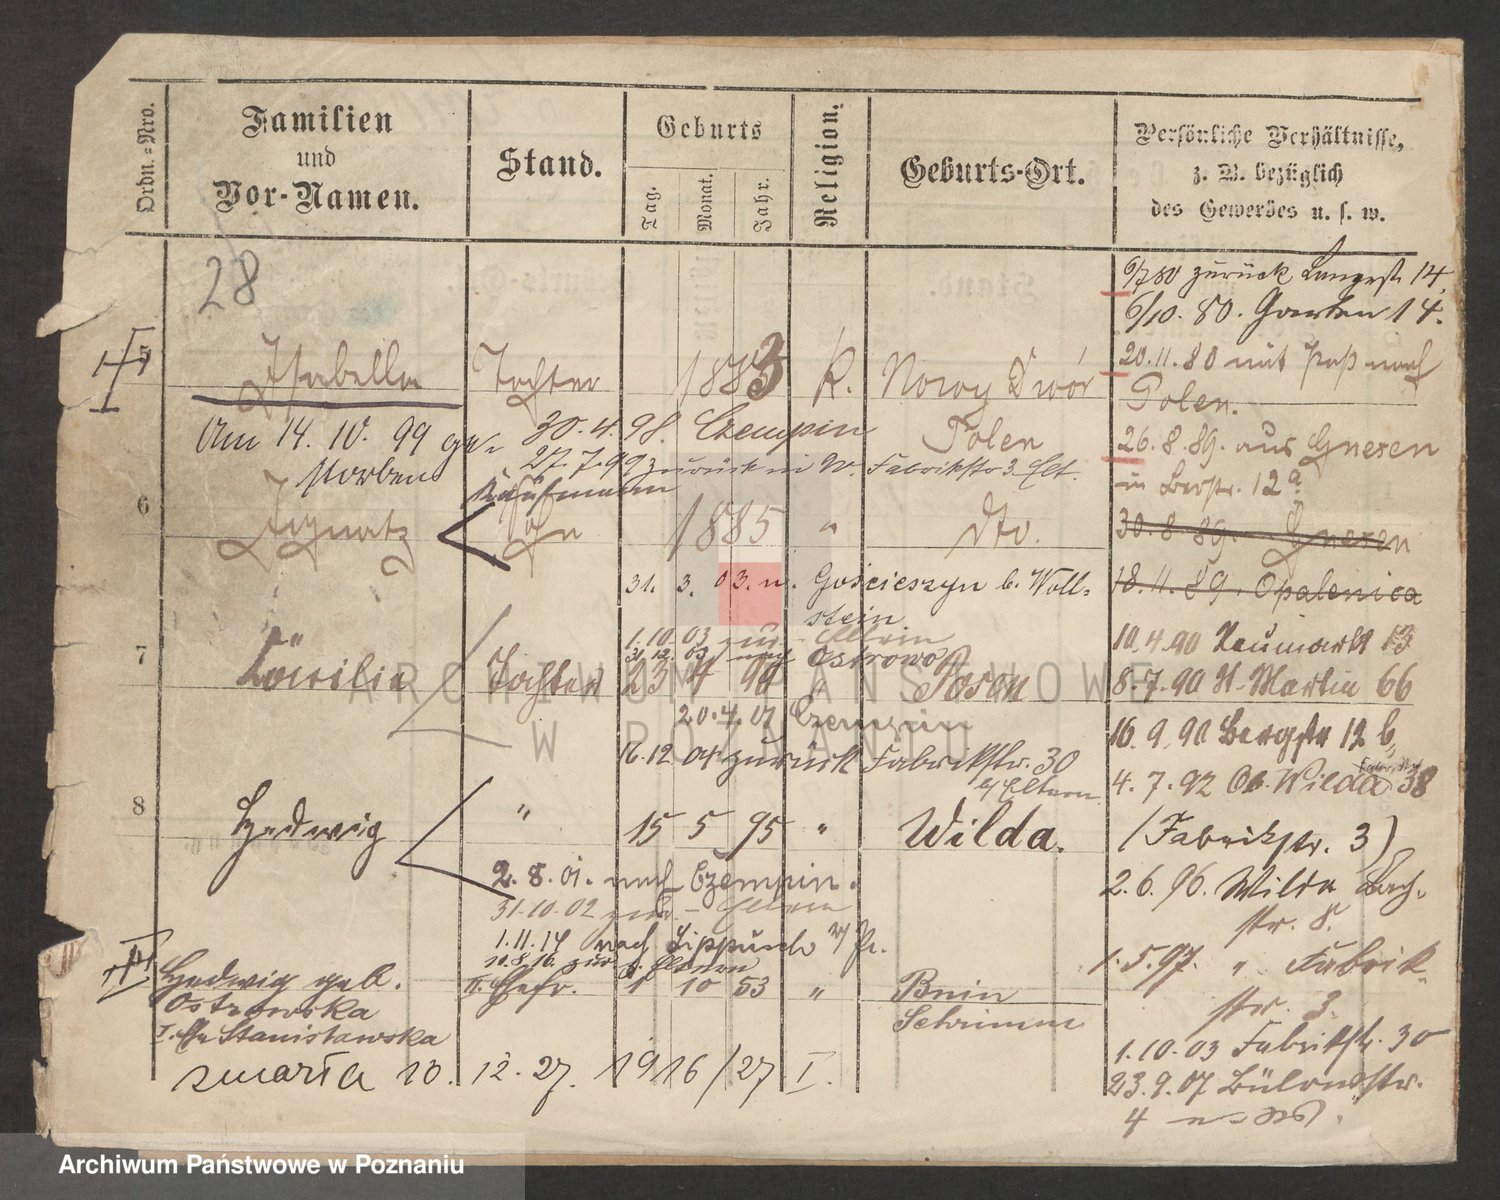 Ordn.-Nro.
Familien
und
Vor-Namen.
Stand.
Geburts
Tag.
Monat.
Jahr.
Religion.
Geburts-Ort.
Persönliche Verhältnisse,
z. B. bezüglich
des Gewerbes u. s. w.
28
6/7 80 zurück Langestr. 14.
6/10. 80. Garten 14.
5
Isabella
Tochter
1883
K.
Nowy Dwór
Polen
20.11.80 mit Paß nach
Polen.
Am 14. 10. 99 ge-
storben
30.4.98. Czempin
27.7.99 zurück in W. Fabrikstr 3. Elt.
26.8.89. aus Gnesen
in Bergstr. 12a.
6
Ignatz
Kaufmann
Sohn
1885
"
Dto.
30.8.89. Gnesen
31. 3. 03. n. Gościeszyn b. Woll-
stein
18.11.89. Opalenica
1.10.03 zur. Eltern
Ostrowo
10.4.90 Neumarkt 13
7
Cäcilie
Tochter
23 4 90
"
Posen
8.7.90 St. Martin 66
20.4.07 Czempin
16.9.90 Bergstr 12 b.
16.12. 07 zurück Fabrikstr. 30
b/ Eltern
4.7.92 Ob. Wilda 38
8
Hedwig
"
15 5 95
"
Wilda.
(Fabrikstr. 3)
2.8.01. nach Czempin.
31.10.02 zur. Eltern
2.6.96. Wilda Bach-
str. 8.
1.11.14 nach Lippusch W/Pr.
10.8.16. zur. Eltern
1.5.97. " Fabrik-
str. 3.
Hedwig geb.
Ostrowska
I. Ehe Stanisławska
II. Ehefr.
1 10 53
"
Bnin
Schrimm
1.10.03 Fabrikstr. 30
zmarła 10. 12. 27. 1916/27 I.
23.9.07 Bülowstr.
4
ARCHIWUM PAŃSTWOWE
W POZNANIU
Archiwum Państwowe w Poznaniu